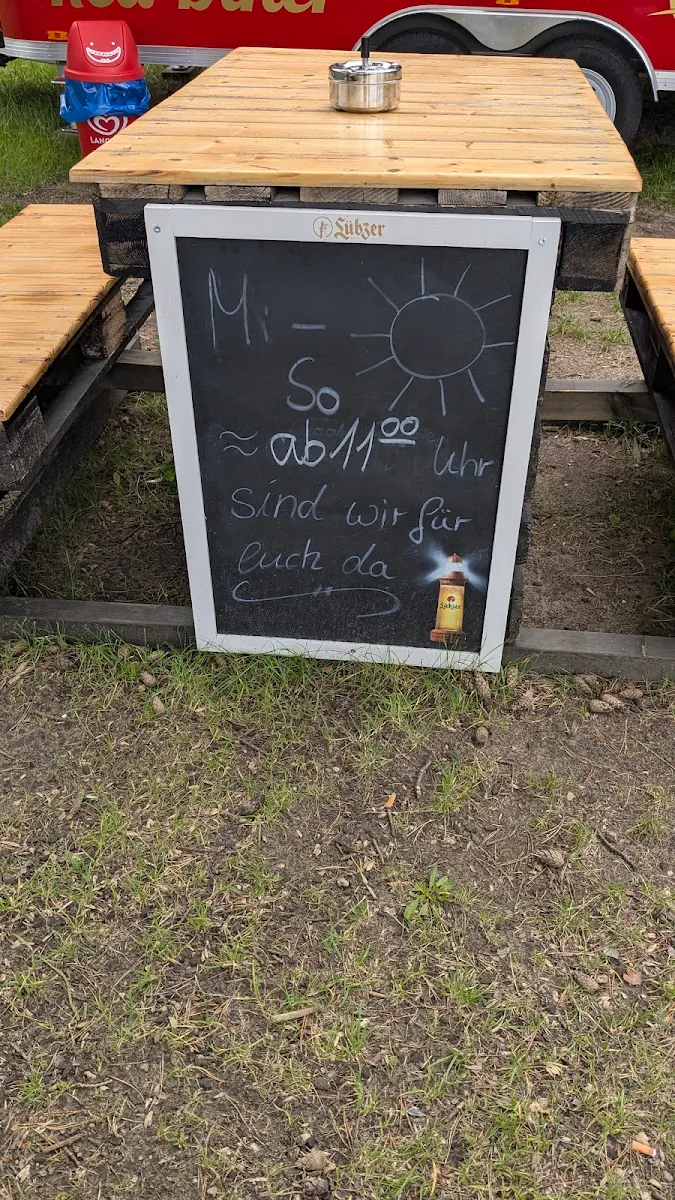 Lübzer
Mi -
So
≈ ab 11⁰⁰ Uhr
sind wir für
euch da
Lübzer